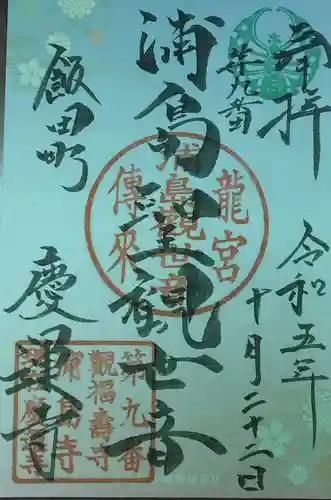 奉拝
第九番
令和五年
十月二十二日
浦島聖観世音
飯田町
慶運寺
龍宮
浦島観世音
傳来
第九番
觀福壽寺
浦島寺